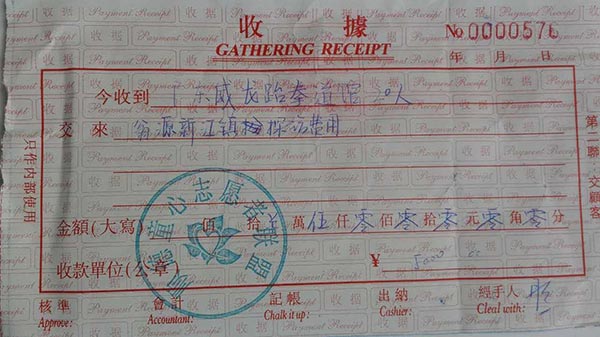 收據
GATHERING RECEIPT
No 0000576
年 月 日
今收到 广东威龙跆拳道馆 20人
交來 翁源新江镇探访费用
金額(大寫) 佰 拾 萬 伍 仟 零 佰 零 拾 零 元 零 角 零 分
收款單位(公章) ¥ 5000
核準 會計 記帳 出納 經手人
Approve: Accountant: Chalk it up: Cashier: Cleal with:
只作内部使用
第二聯:交顧客
童心志愿者联盟